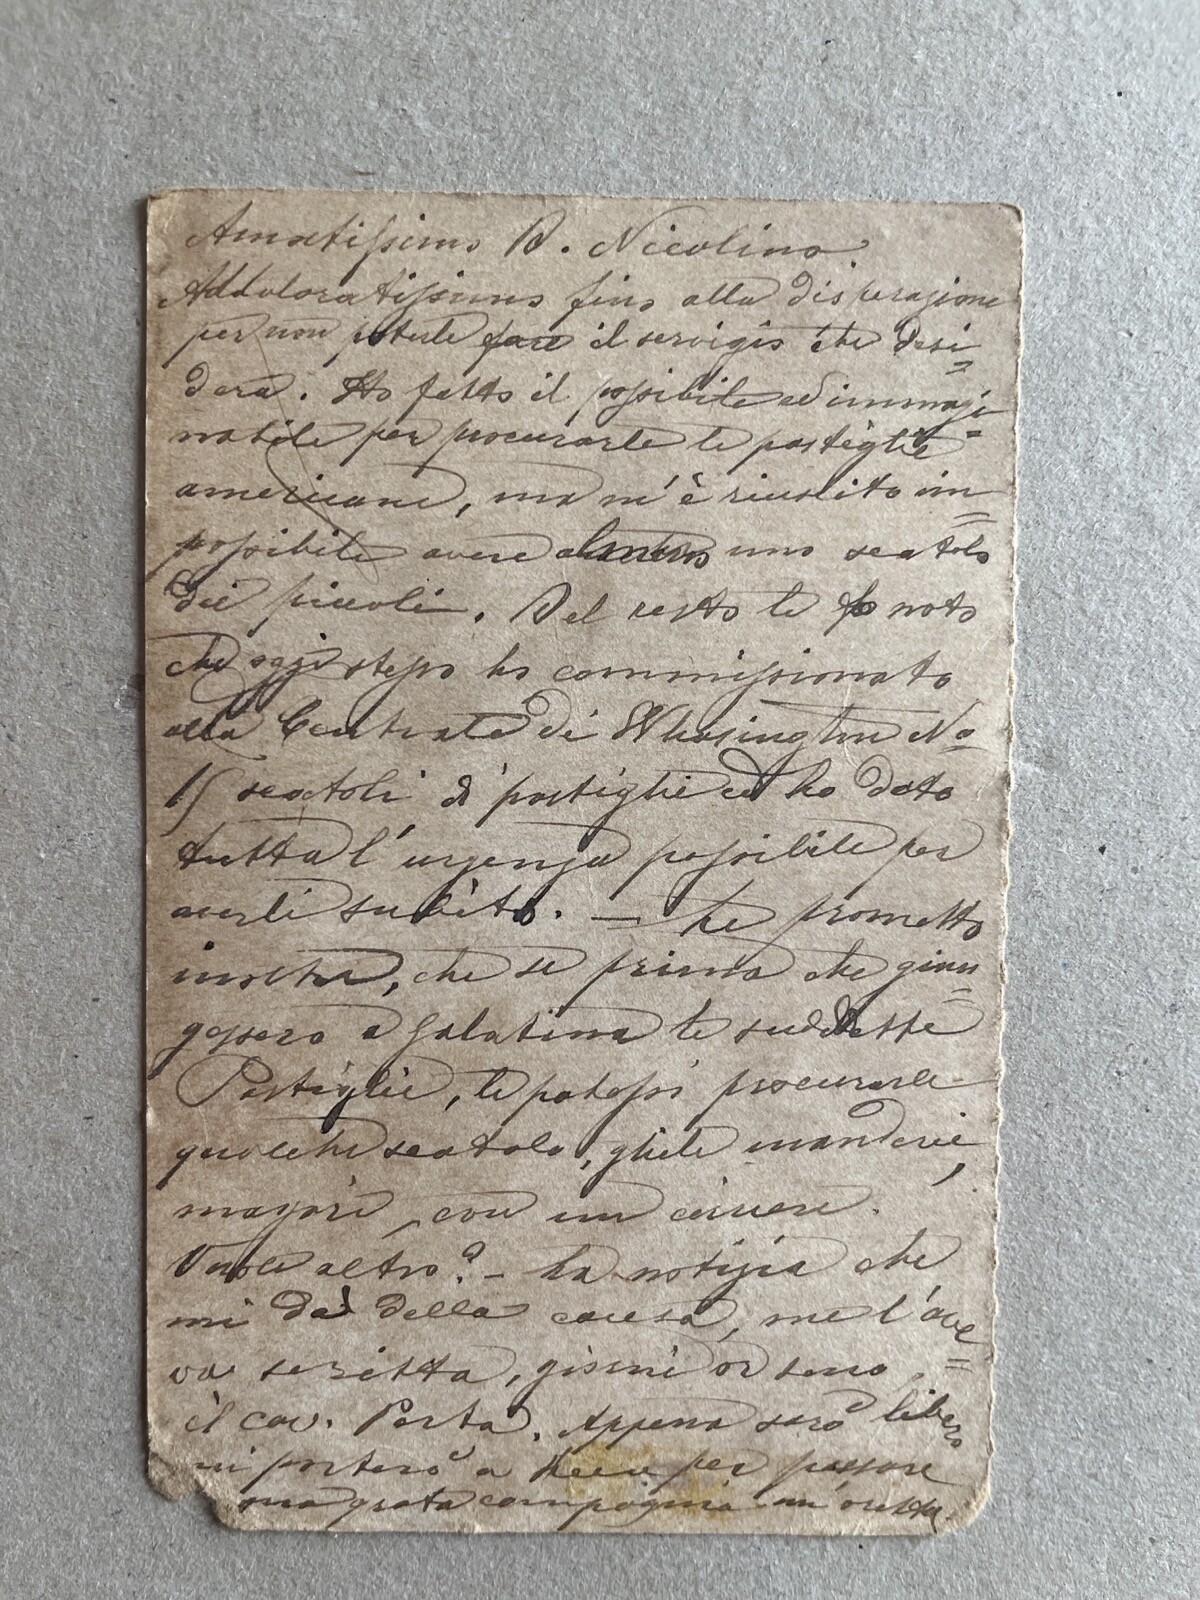 Amatissimo D. Nicolino.
Addoloratissimo fino alla disperazione
per non poterle fare il servigio che desi=
dera. Ho fatto il possibile ed immagi=
nabile per procurarle le pastiglie
americane, ma m'è riuscito im=
possibile avere almeno uno scatolo
dei piccoli. Del resto le fo noto
che oggi stesso ho commissionato
alla Centrale di Whasington No
15 scatoli di pastiglie ed ho dato
tutta l'urgenza possibile per
averli subito. — Le prometto
inoltre, che se prima che giun=
gessero a Galatina le suddette
Pastiglie, le potessi procurare
qualche scatolo, gliele manderei,
magari con un corriere.
Vuole altro? - La notizia che
mi dà della causa, me l'ave=
va scritta, giorni or sono
il cav. Porta. Appena sarò libero
mi porterò a Lecce per passare
grata compagnia un'oretta.